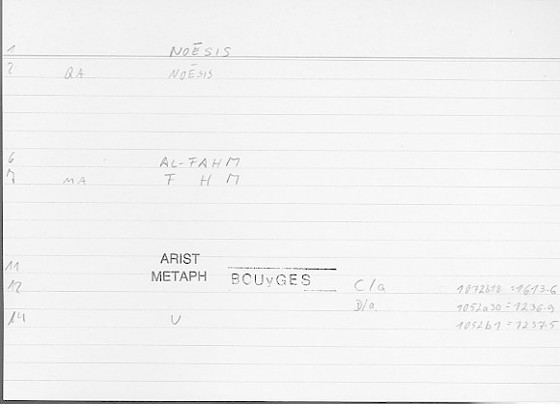 1 NOĒSIS
2 QA NOĒSIS
6 AL-FAHM
7 MA F H M
11 ARIST
12 METAPH BOUyGES C/a 1072b18 = 1613.6
D/a 1052a30 = 1236.9
14 U 1052b1 = 1237.5